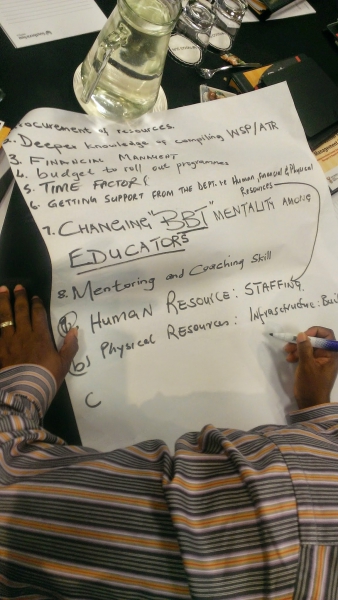 rocurement of resources.
2. Deeper knowledge of compiling WSP/ATR
3. FINANCIAL MANAGMENT
4. budget to roll out programmes
5. TIME FACTOR
6. GETTING SUPPORT FROM THE DEPT. re Human, financial & Physical
Resources
7. CHANGING "BBT" MENTALITY AMONG
EDUCATORS
8. Mentoring and Coaching Skill
(a) HUMAN RESOURCE: STAFFING
(b) Physical Resources: Infrastructure: Buil
C